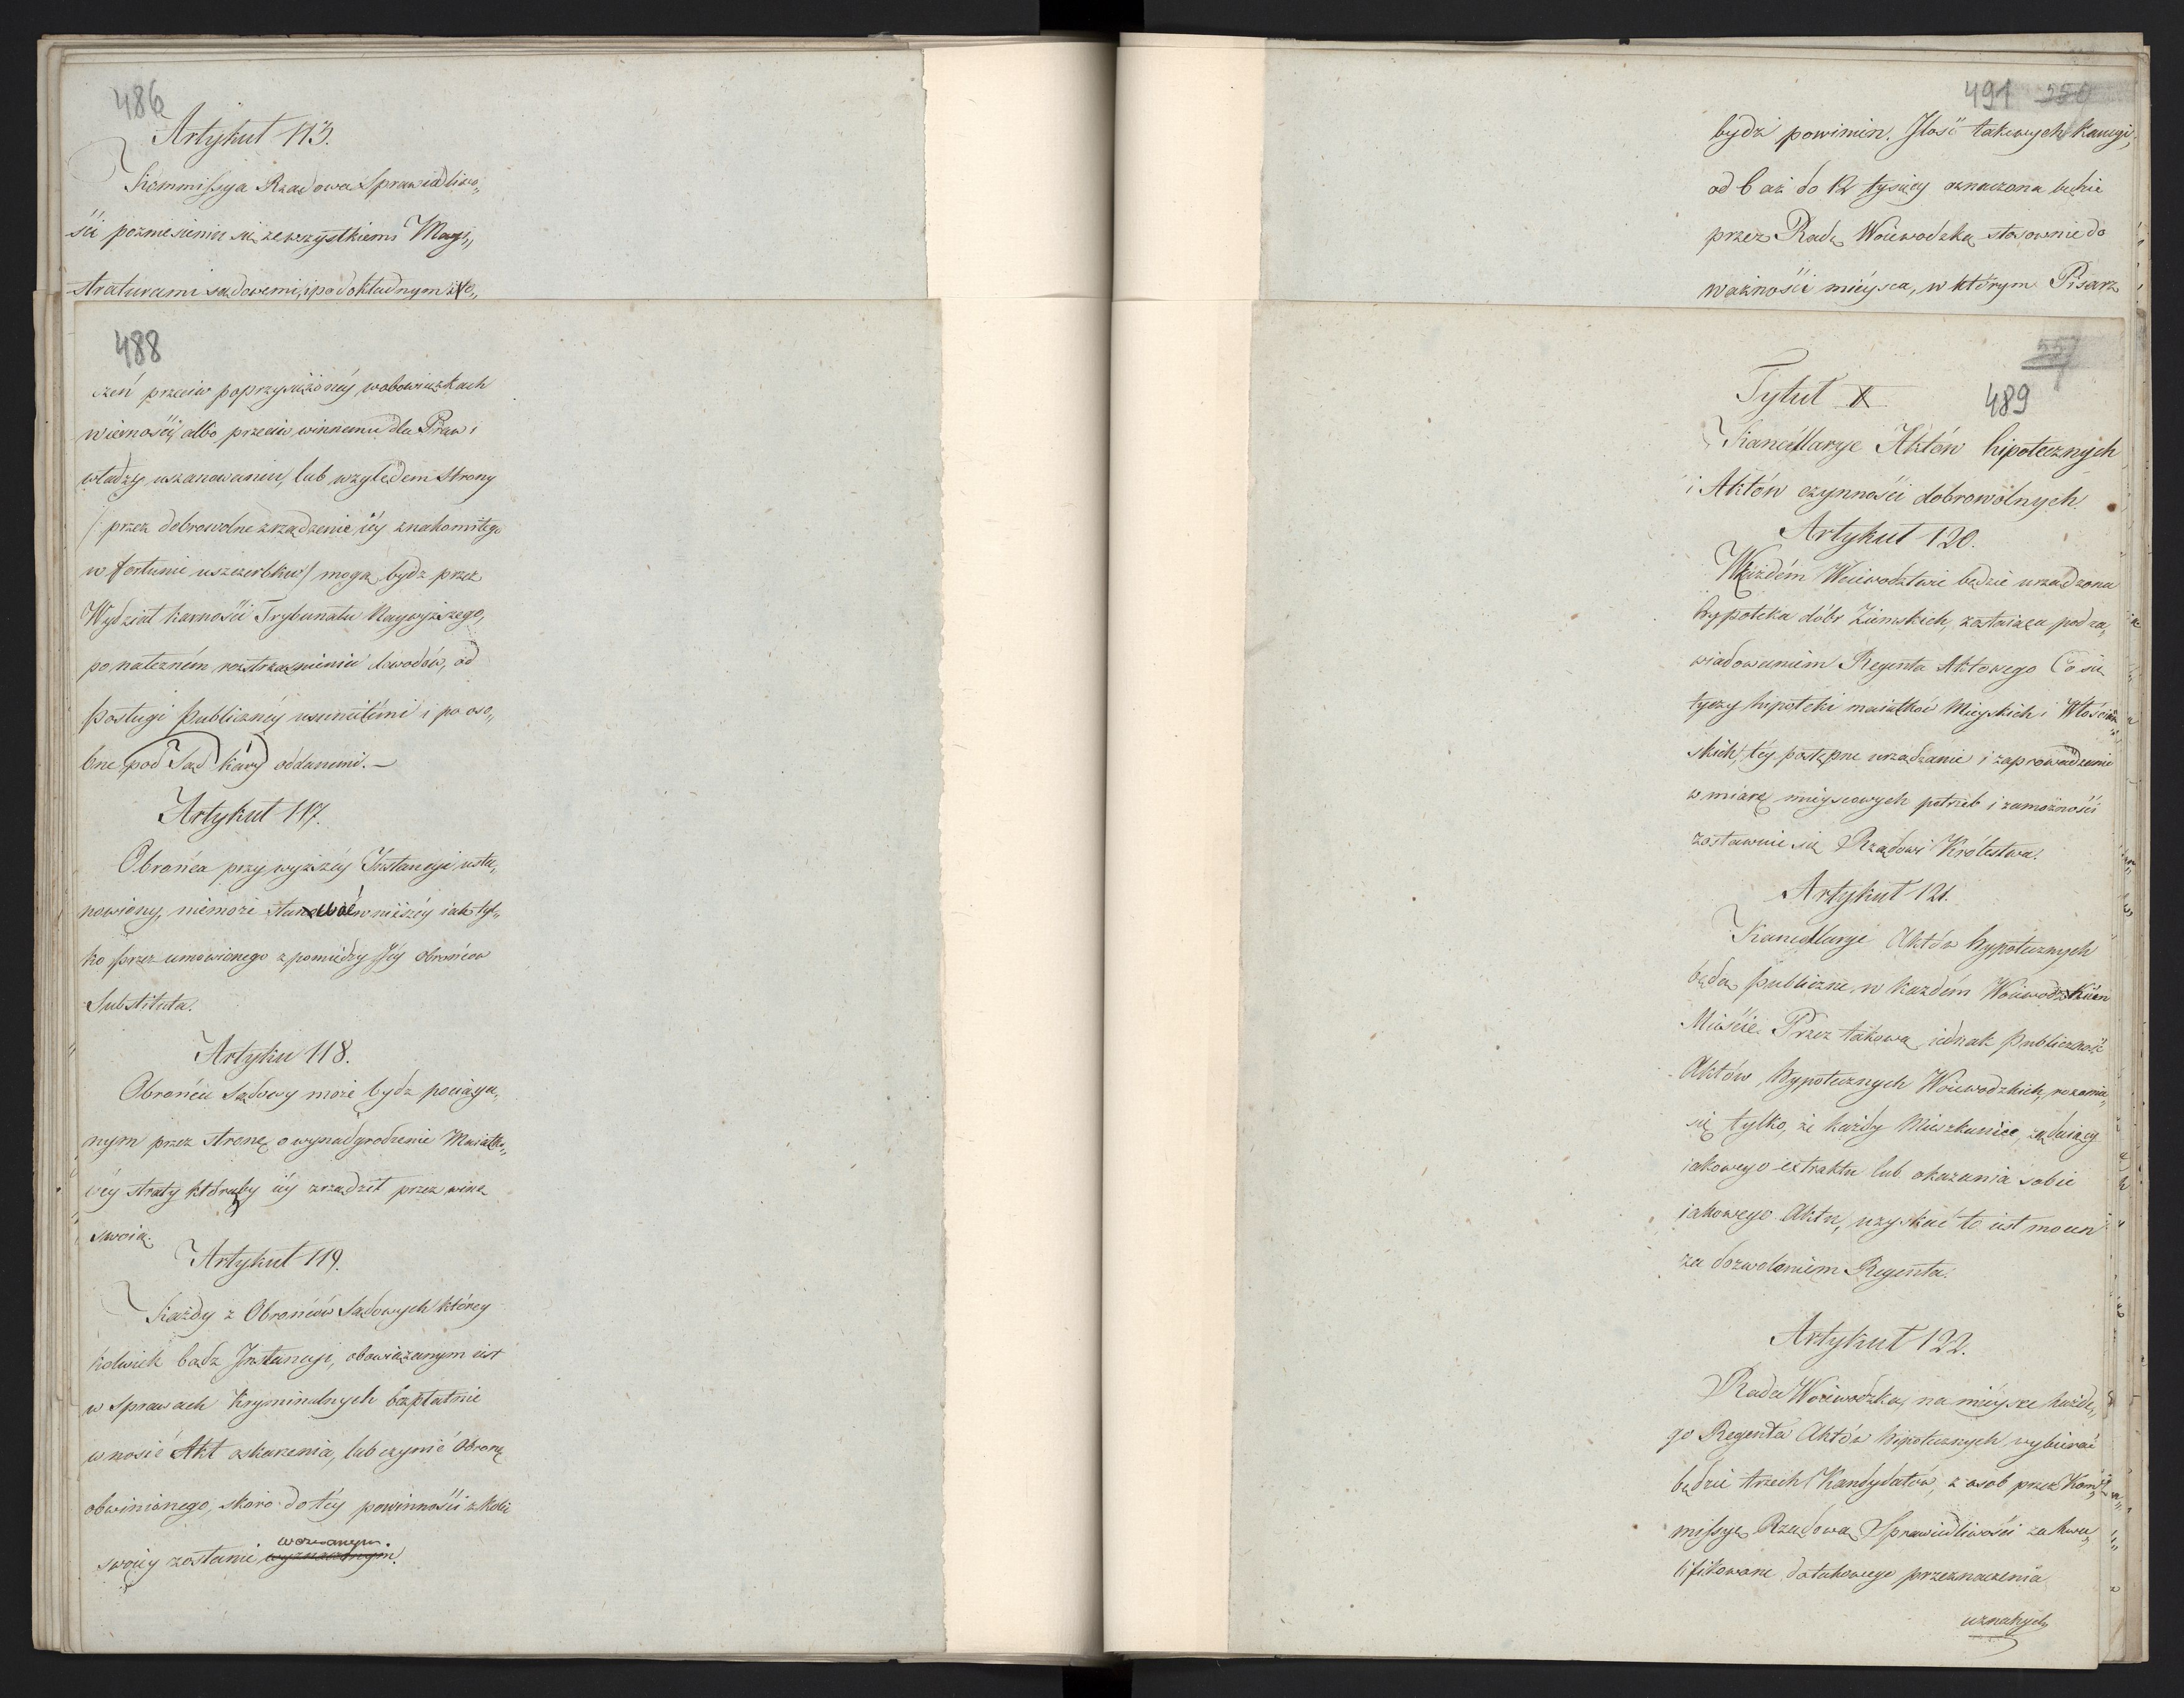 486
Artykuł 113.
Kommissya Rządowa Sprawiedliwo„
ści poźniesieniu się ze wszystkiemi Magi„
straturami sądowemi, i po dokładnym
488
czeń przeciw poprzysiężonéy w obowiązkach
wierności, albo przeciw winnemu dla Praw i
władzy uszanowaniu, lub względem Strony
/: przez dobrowolne zrządzenie iéy znakomitego
w fortunie uszczerbku/ mogą bydz przez
Wydział karności Trybunału Naywyższego,
po należném rozstrząśnieniu dowodów, od
posługi publicznéy usuniętemi i po oso„
bne pod Sąd kary oddanemi. —
Artykuł 117.
Obrońca przy wyższéy Instancyi usta„
nowiony, niemoże stawać w niższéy iak tyl„
ko przez umówionego z pomiędzy téy obrońców
Substituta.
Artyku 118.
Obrońca Sądowy może bydz pociąga„
nym przez stronę o wynadgrodzenie Maiątko„
wéy straty któraby iéy zrządził przez winę
swoią.
Artykuł 119.
Każdy z Obrońców Sądowych którey
kolwiek bądz Instancyi, obowiązanym iest
w Sprawach Kryminalnych bezpłatnie
wnosić Akt oskarżenia, lub czynić Obronę
obwinionego, skoro do téy powinności z kolei
wezwanym
swoiéy zostanie wyznaczonym.
491 550
bydź powinien. Ilość takowych kaucyi,
od 6 aż do 12 tysięcy oznaczona będzie
przez Radę Woiewodzką stosownie do
ważności mieysca, w którym Pisarz
551
489
Tytuł X
Kancellarye Aktów hipotecznych
i Aktów czynności dobrowolnych.
Artykuł 120.
W każdém Woiewodztwie będzie urządzona
hypoteka dóbr Ziemskich, zostaiąca pod za„
wiadowaniem Regenta Aktowego Co się
tyczy hipoteki maiątków Mieyskich i Włościań„
skich, téy postępne urządzenie i zaprowadzenie
w miarę mieyscowych potrzeb i zamożności
zostawuie się Rządowi Królestwa.
Artykuł 121.
Kancellarye Aktów hypotecznych
będą publiczne, w każdém Woiewodzkiem
Mieście. Przez takową iednak publiczność
Aktów hypotecznych Woiewodzkich, rozumie
się tylko, że każdy Mieszkaniec żądaiący
iakowego extraktu lub okazania sobie
iakowego Aktu, uzyskać to iest mocen
za dozwoleniem Regenta.
Artykuł 122.
Rada Woiewodzka, na mieysce każde„
go Regenta Aktów hipotecznych wybierać
będzie trzech Kandydatów, z osób przez Kom„
missyą Rządową Sprawiedliwości za kwa„
lifikowane do takowego przeznaczenia
uznanych